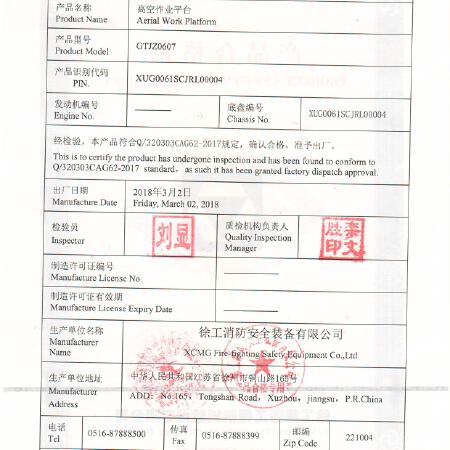 产品名称 高空作业平台
Product Name Aerial Work Platform
产品型号 GTJZ0607
Product Model
产品识别代码 XUG0061SCJRL00004
PIN.
发动机编号 底盘编号 XUG0061SCJRL00004
Engine No. Chassis No.
经检验，本产品符合Q/320303CAG62-2017规定，确认合格，准予出厂。
This is to certify the product has undergone inspection and has been found to conform to
Q/320303CAG62-2017 standard, as such it has been granted factory dispatch approval.
出厂日期 2018年3月2日
Manufacture Date Friday, March 02, 2018
检验员 质检机构负责人
Inspector Quality Inspection
Manager
刘显
制造许可证编号
Manufacture License No.
制造许可证有效期
Manufacture License Expiry Date
生产单位名称 徐工消防安全装备有限公司
Manufacturer XCMG Fire-fighting Safety Equipment Co.,Ltd
Name
生产单位地址 中华人民共和国江苏省徐州市铜山路165号
Manufacturer ADD: No.165, Tongshan Road, Xuzhou, jiangsu, P.R.China
Address
电话 0516-87888500 传真 0516-87888399 邮编 221004
Tel Fax Zip Code